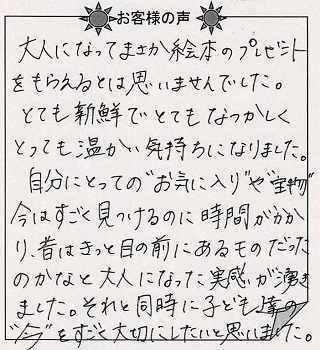 お客様の声
大人になってまさか絵本のプレゼント
をもらえるとは思いませんでした。
とても新鮮でとてもなつかしく
とっても温かい気持ちになりました。
自分にとっての"お気に入り"や"宝物"
今はすごく見つけるのに時間がかか
り、昔はきっと目の前にあるものだった
のかなと大人になった実感が湧き
ました。それと同時に子ども達の
"今"をすごく大切にしたいと思いました。